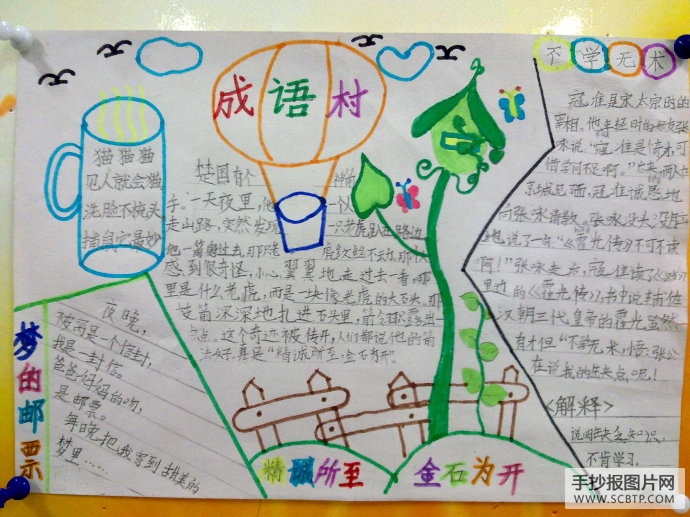 成语村
猫猫猫
见人就会猫
洗脸不梳头
捕鼠它最妙
楚国有个 神箭
手。一天夜里,他
走山路,突然发现 一只老虎趴在路边
他一箭射过去,那老虎纹丝不动,那
感到很奇怪,小心翼翼地走过去一看,哪
里是什么老虎,而是一块像老虎的大石头,那
支箭深深地扎进石头里,
点点。这个奇迹被传开,人们都说他的箭
法好,真是“精诚所至金石为开”。
不学无术
寇准是宋太宗时的
宰相。他年轻时的好友张
咏说:“寇准是奇才可
惜学问不足啊。”
京城见面,寇准诚恳地
向张咏请教。张咏
地说了一句:“《霍光传》不可不读
啊!”张咏走后,寇准读了《汉书》
里边的《霍光传》,书中说辅佐
汉朝三代皇帝的霍光虽然
有才但“不学无术,悟:张公
在说我的缺点呢!
<解释>
说因缺乏知识,
不肯学习。
梦的邮票
夜晚,
被窝是一个信封,
我是一封信。
爸爸妈妈的吻,
是邮票。
每晚把我寄到甜美的
梦里……
精诚所至 金石为开
手抄报图片网
WWW.SCBTP.COM